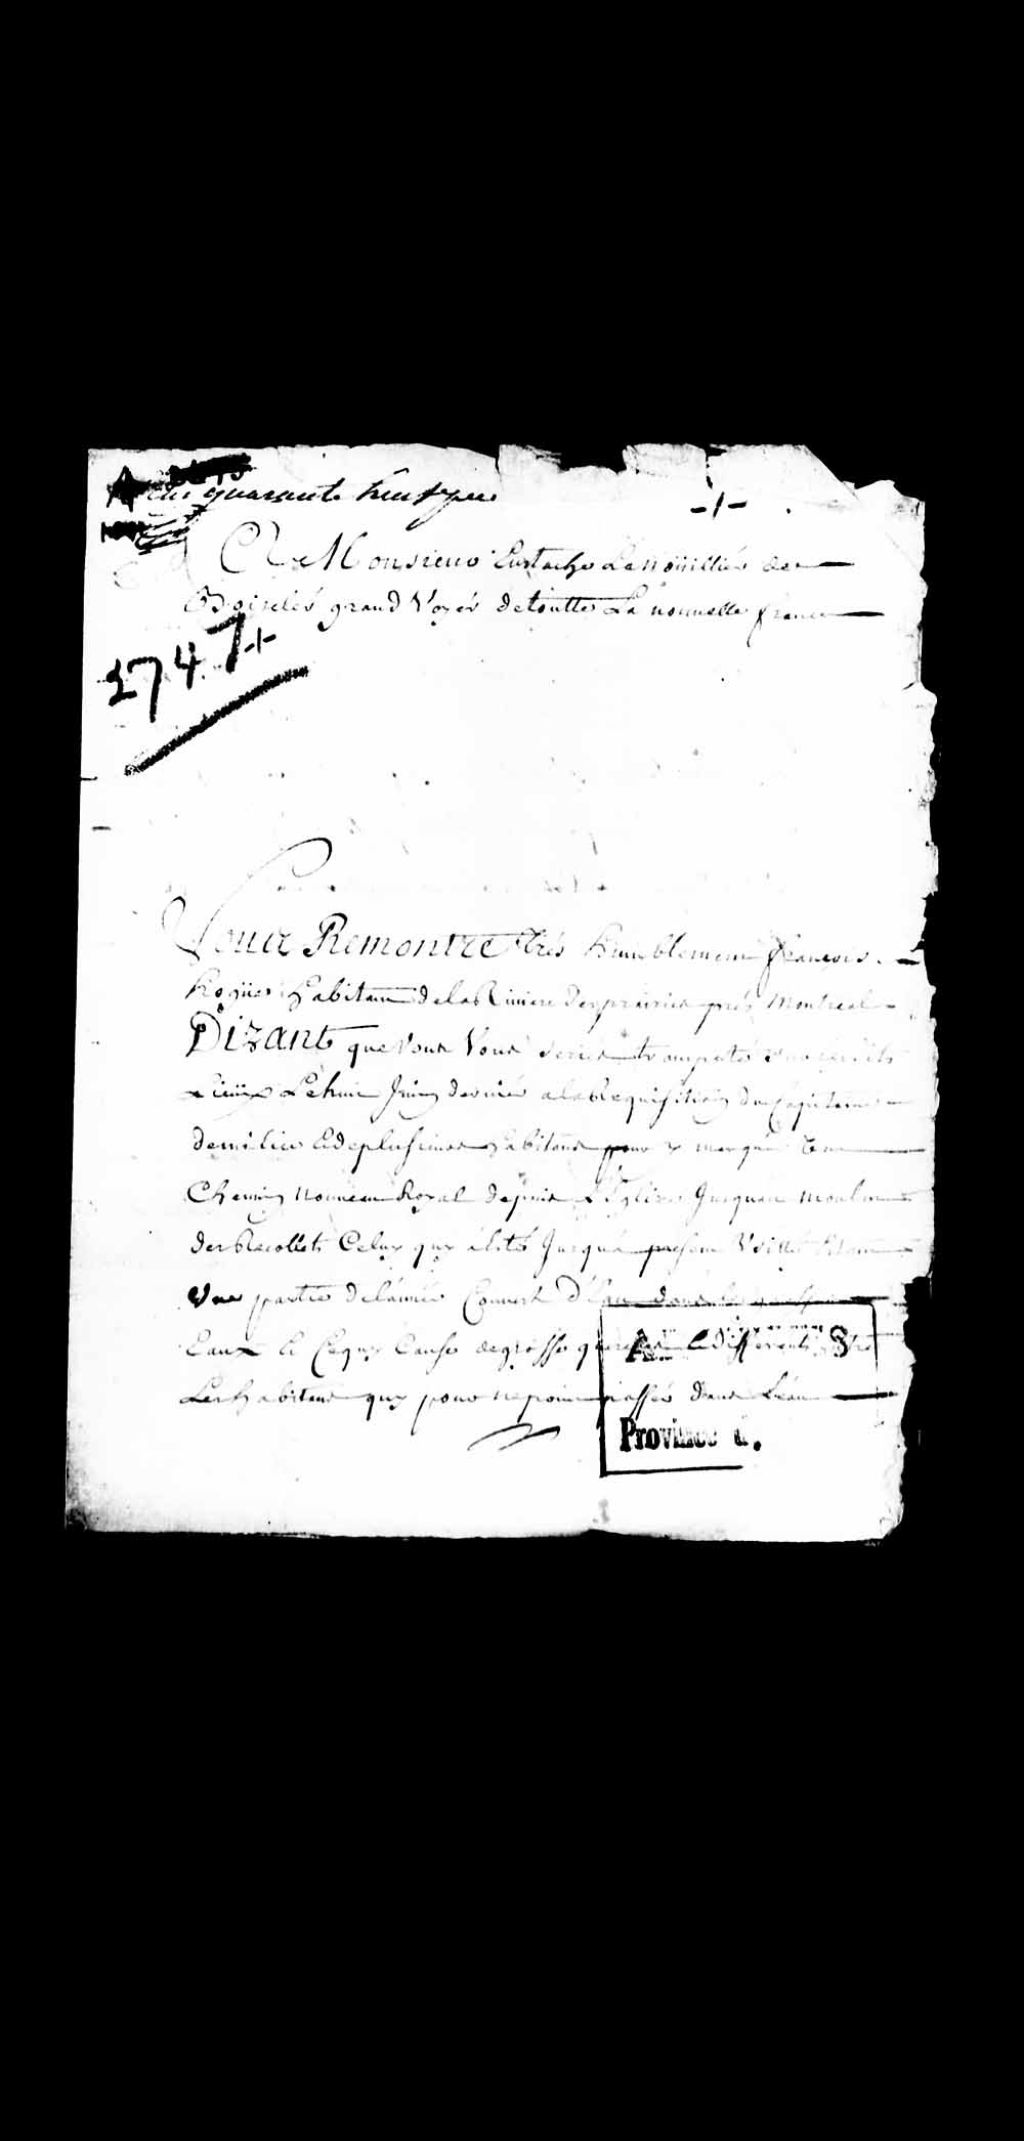 quarante huit
-/-
A Monsieur Eustache Lanoüillier de
Boiscler grand Voyer de toutte La nouvelle france
2747+
Vous Remontre très humblement françois
hogue habitant de la Riviere des prairies près Montreal
Dizant que vous vous series transporté
Lieux Le huit Juin dernier a la Requisition du Capitaine
de milice & de plusieurs habitans pour y marqué
Chemin nouveau Royal depuis L'Eglise Jusquau moulin
des Recollets Celuy qui a été Jusqu'a present
Une partie de l'année Couvert d'Eau dans
Eaux Ce quy Cause de grosse differents
Les habitans quy pour ne point passer dans L'eau
A 3
Province